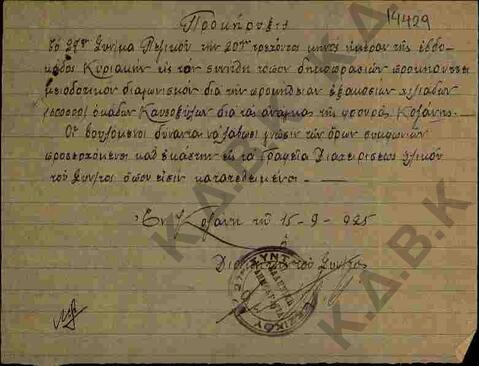 14429
Προκήρυξις
Τό 27ον Σύν/μα Πεζικού την 20ην τρέχοντος μηνός ημέραν της εβδο-
μάδος Κυριακήν εις τον συνήθη τόπον δημοπρασιών προκηρύττει
μειοδοτικόν διαγωνισμόν διά την προμήθειαν εξακοσίων χιλιάδων
(600000) οκάδων Καυσοξύλων διά τας ανάγκας της φρουράς Κοζάνης.
Οι βουλόμενοι δύνανται να λάβωσι γνώσιν των όρων συμφωνιών
προσερχόμενοι καθ' εκάστην εις τα Γραφεία Διαχειρίσεως υλικού
του Συν/τος όπου εισίν κατατεθειμένοι.
Εν Κοζάνη τη 15-9-925
Ο
Διοικητής του Συν/τος
Κ.Δ.Β.Κ
Κ.Δ.Β.Κ